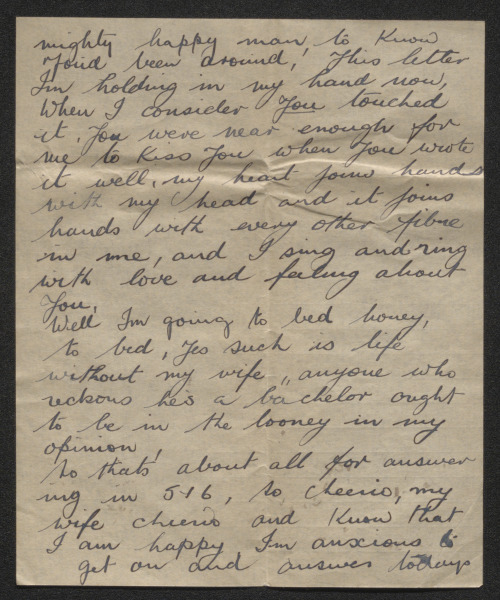 mighty happy man, to know
You'd been around, This letter
I'm holding in my hand now,
When I consider You touched
it, You were near enough for
me to kiss You when You wrote
it well, my heart joins hands
with my head and it joins
hands with every other fibre
in me, and I sing and ring
with love and feeling about
You,
Well I'm going to bed honey,
to bed, Yes such is life
without my wife, anyone who
reckons he's a bachelor ought
to be in the looney in my
opinion,
So thats about all for answer
ing in 516, so cheerio, my
wife cheerio and know that
I am happy I'm anxious to
get on and answer todays